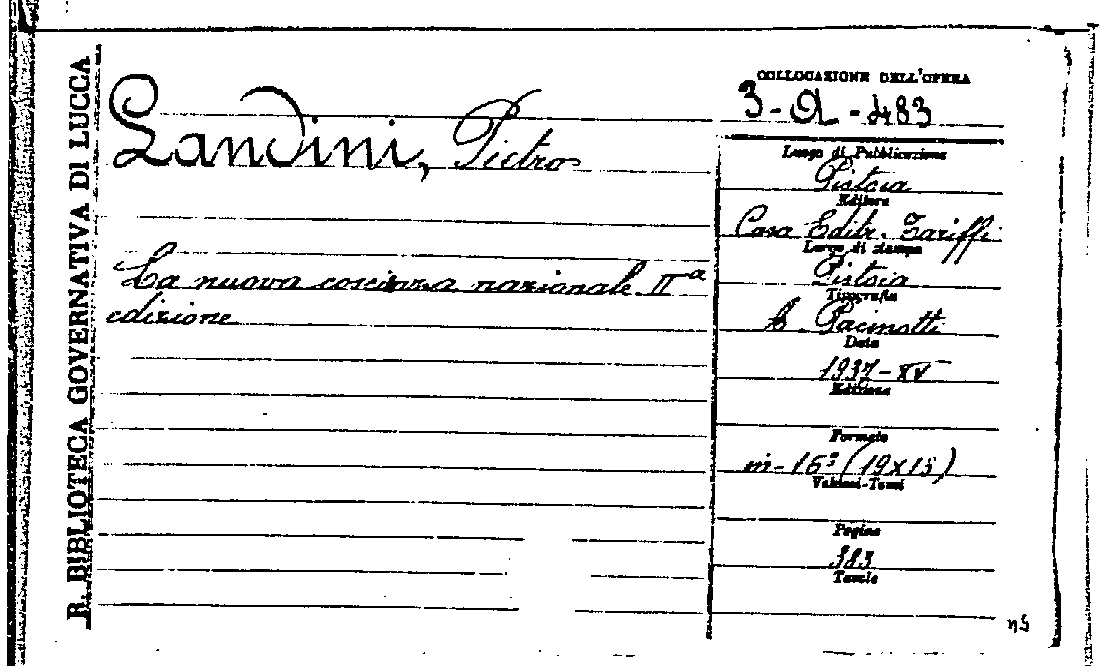 R. BIBLIOTECA GOVERNATIVA DI LUCCA
Landini, Pietro
La nuova coscienza nazionale IIª
edizione
COLLOCAZIONE DELL'OPERA
3-a-483
Luogo di Pubblicazione
Pistoia
Editore
Casa Editr. Tariffi
Luogo di stampa
Pistoia
Tipografia
Pacinotti
Data
1937-XV
Edizione
Formato
in-16º (19x15)
Volumi-Tomi
Pagine
383
Tavole